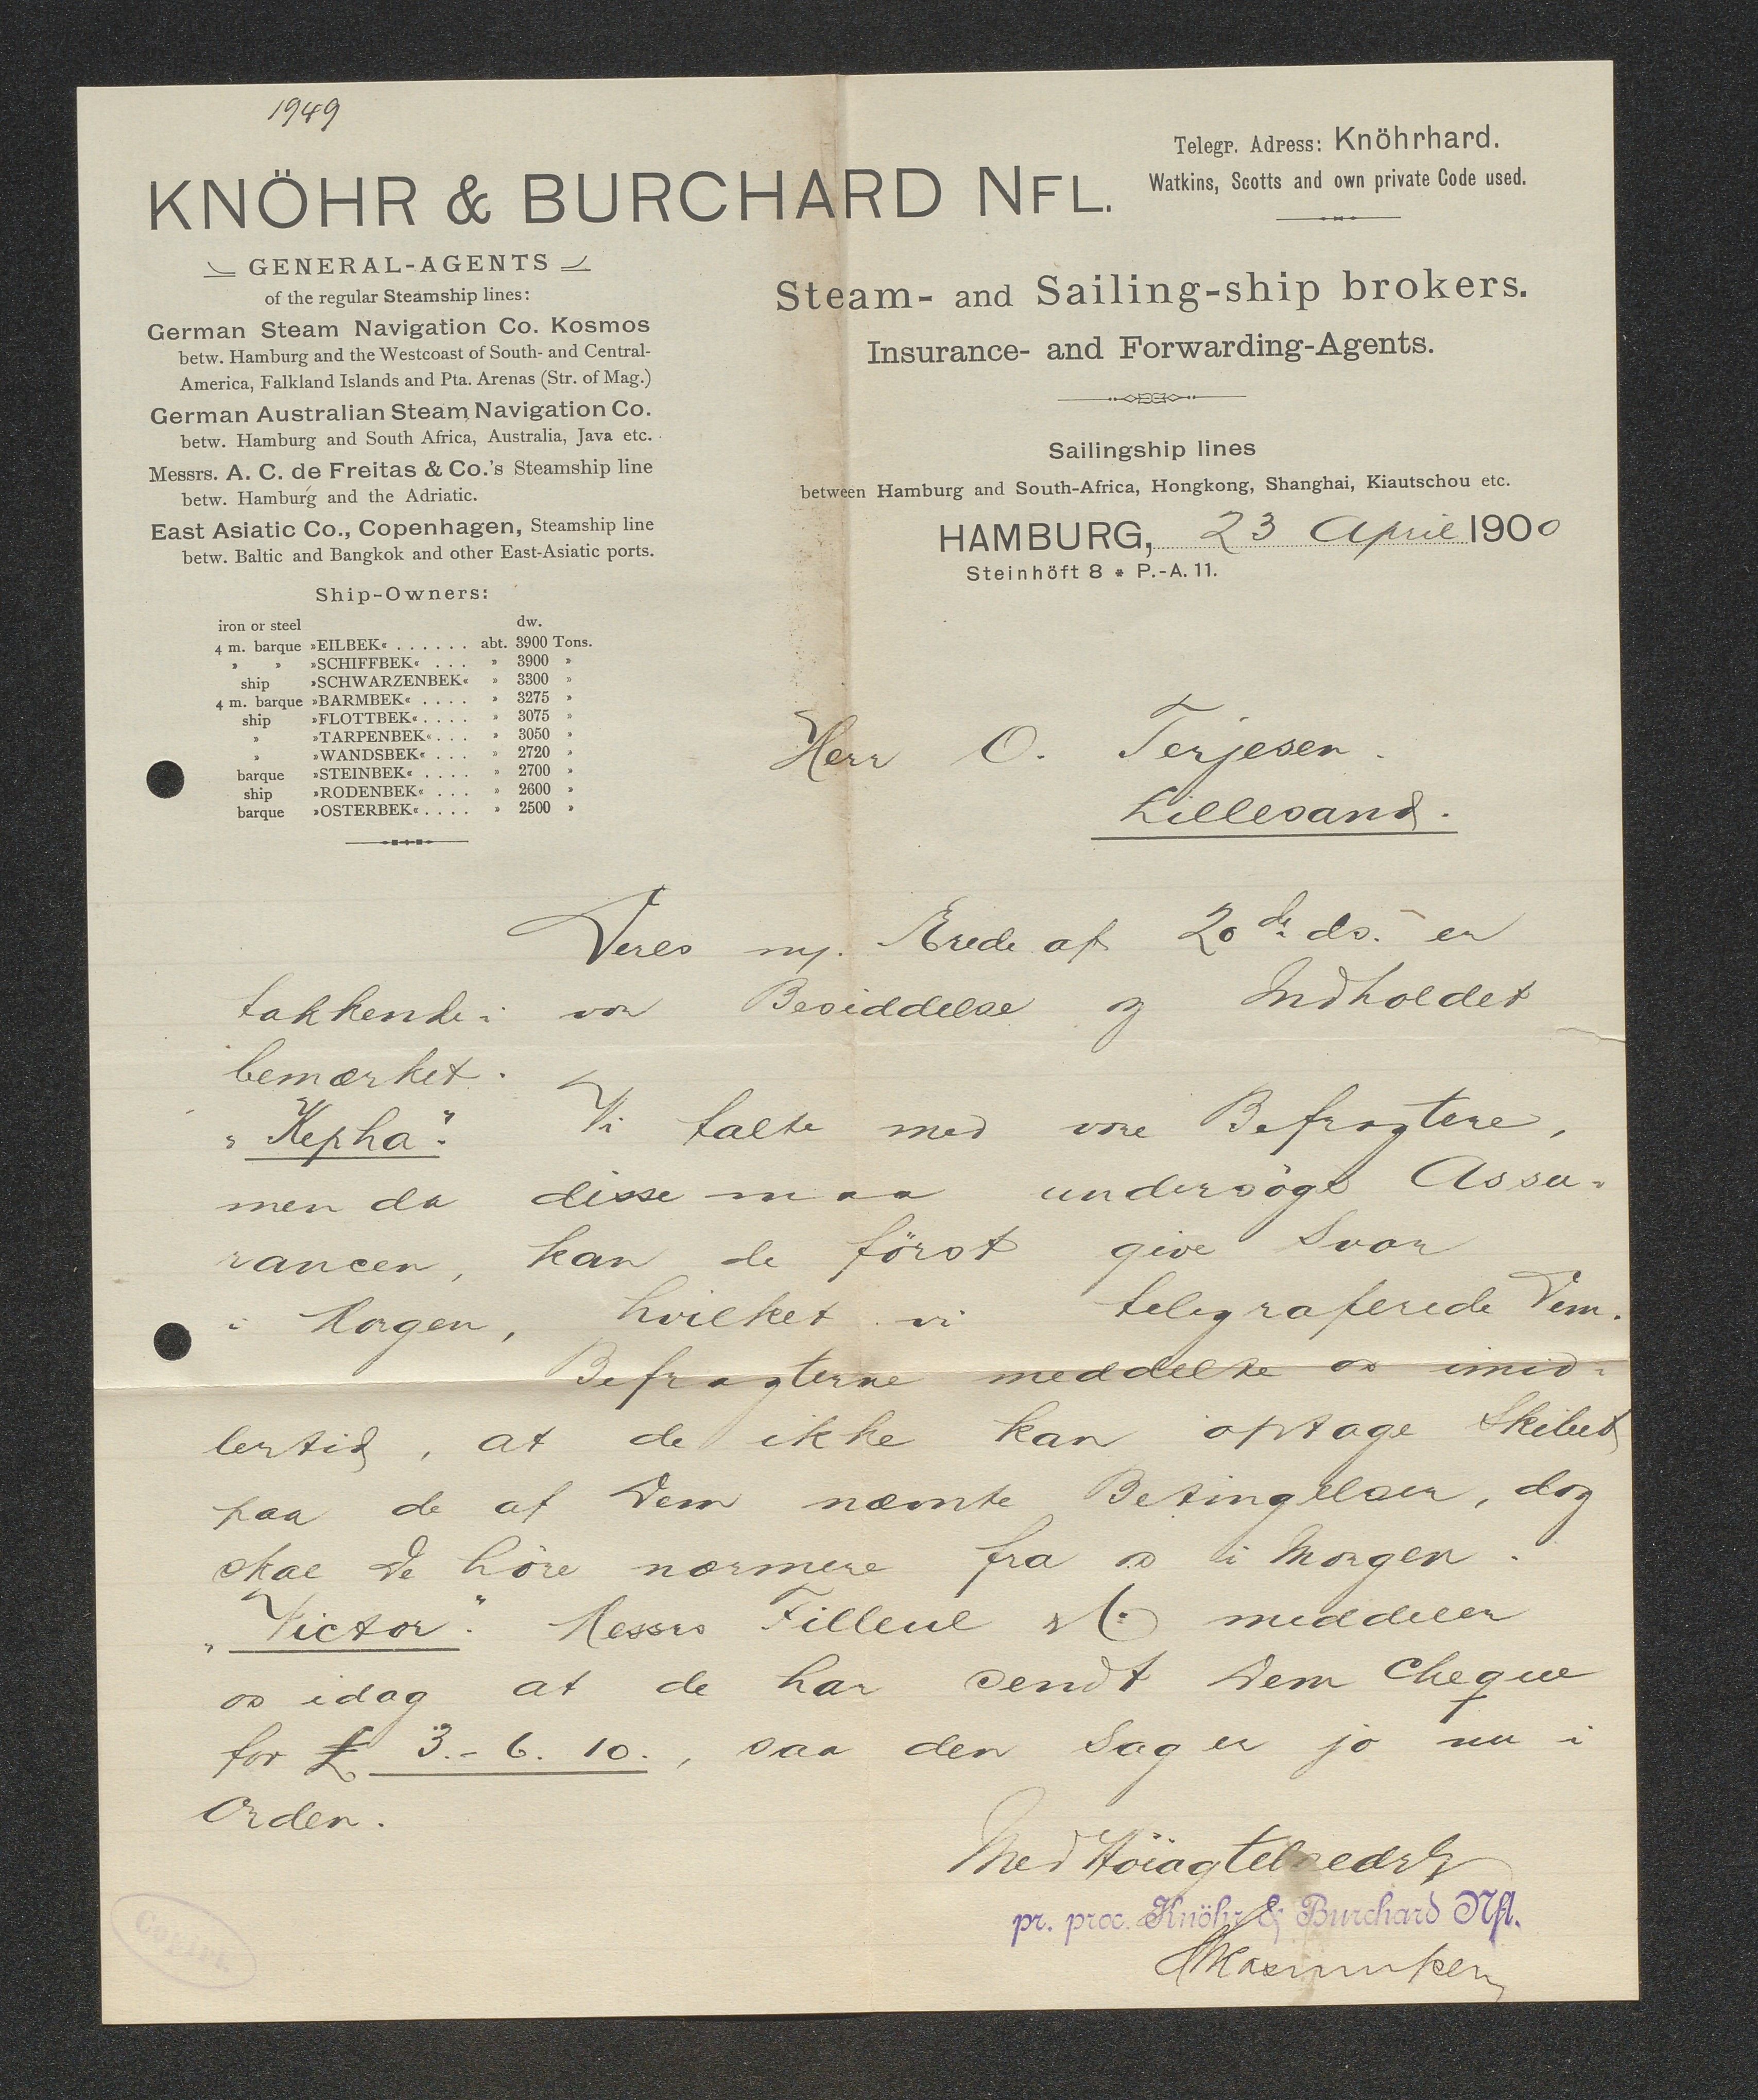 1949
KNÖHR & BURCHARD NFL.
Telegr. Adress: Knöhrhard.
Watkins, Scotts and own private Code used.
GENERAL-AGENTS
of the regular Steamship lines:
German Steam Navigation Co. Kosmos
betw. Hamburg and the Westcoast of South- and Central-
America, Falkland Islands and Pta. Arenas (Str. of Mag.)
German Australian Steam Navigation Co.
betw. Hamburg and South Africa, Australia, Java etc.
Messrs. A. C. de Freitas & Co.'s Steamship line
betw. Hamburg and the Adriatic.
East Asiatic Co., Copenhagen, Steamship line
betw. Baltic and Bangkok and other East-Asiatic ports.
Ship-Owners:
iron or steel dw.
4 m. barque »EILBEK« . . . . . . abt. 3900 Tons.
» » »SCHIFFBEK« . . . » 3900 »
ship »SCHWARZENBEK« » 3300 »
4 m. barque »BARMBEK« . . . . » 3275 »
ship »FLOTTBEK« . . . . » 3075 »
» »TARPENBEK« . . . » 3050 »
» »WANDSBEK« . . . » 2720 »
barque »STEINBEK« . . . . » 2700 »
ship »RODENBEK« . . . » 2600 »
barque »OSTERBEK« . . . . » 2500 »
Steam- and Sailing-ship brokers.
Insurance- and Forwarding-Agents.
Sailingship lines
between Hamburg and South-Africa, Hongkong, Shanghai, Kiautschou etc.
HAMBURG, 23 April 1900
Steinhöft 8 * P.-A. 11.
Herr O. Terjesen.
Lillesand.
Deres Ærede af 20de ds. er
takkende i vor Besiddelse og Indholdet
bemærket.
"Kepha". Vi talte med vore Befragtere,
men da disse maa undersöge Assu-
rancen, kan de först give Svar
i Morgen, hvilket vi telegraferede Dem.
Befragterne meddelte os imid-
lertid, at de ikke kan optage Skibet
paa de af Dem nævnte Betingelser, dog
skal De höre nærmere fra os i Morgen.
"Victor". Messrs Filleul & Co meddeler
os idag at de har sendt Dem Cheque
for £ 3.- 6. 10., saa den Sag er jo nu i
Orden.
Med Höiagtelse
pr. proc. Knöhr & Burchard Nfl.
Copirt.